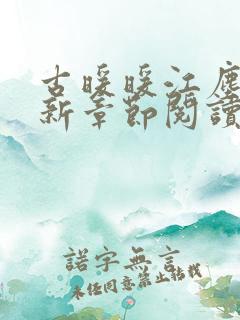 古暖暖江塵
新章節閱讀
諾字無言
未经同意禁止转载